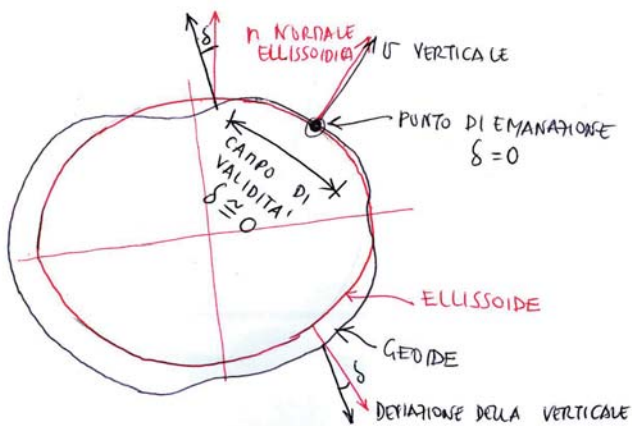 δ
n NORMALE
ELLISSOIDICA
υ VERTICALE
PUNTO DI EMANAZIONE
δ = 0
CAMPO DI
VALIDITA'
δ ≅ 0
ELLISSOIDE
GEOIDE
δ
DEVIAZIONE DELLA VERTICALE